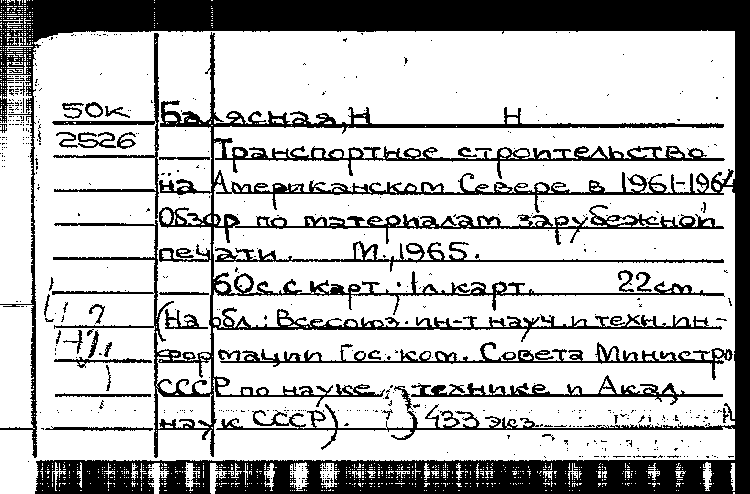 50к Балясная, Н Н
2526 Транспортное строительство
на Американском Севере в 1961-1964
Обзор по материалам зарубежной
печати. М., 1965.
60с. с карт.; 1л. карт. 22см.
(На обл.: Всесоюз. ин-т науч. и техн. ин-
формации Гос. ком. Совета Министро
СССР по науке и технике и Акад.
наук СССР). 433 экз